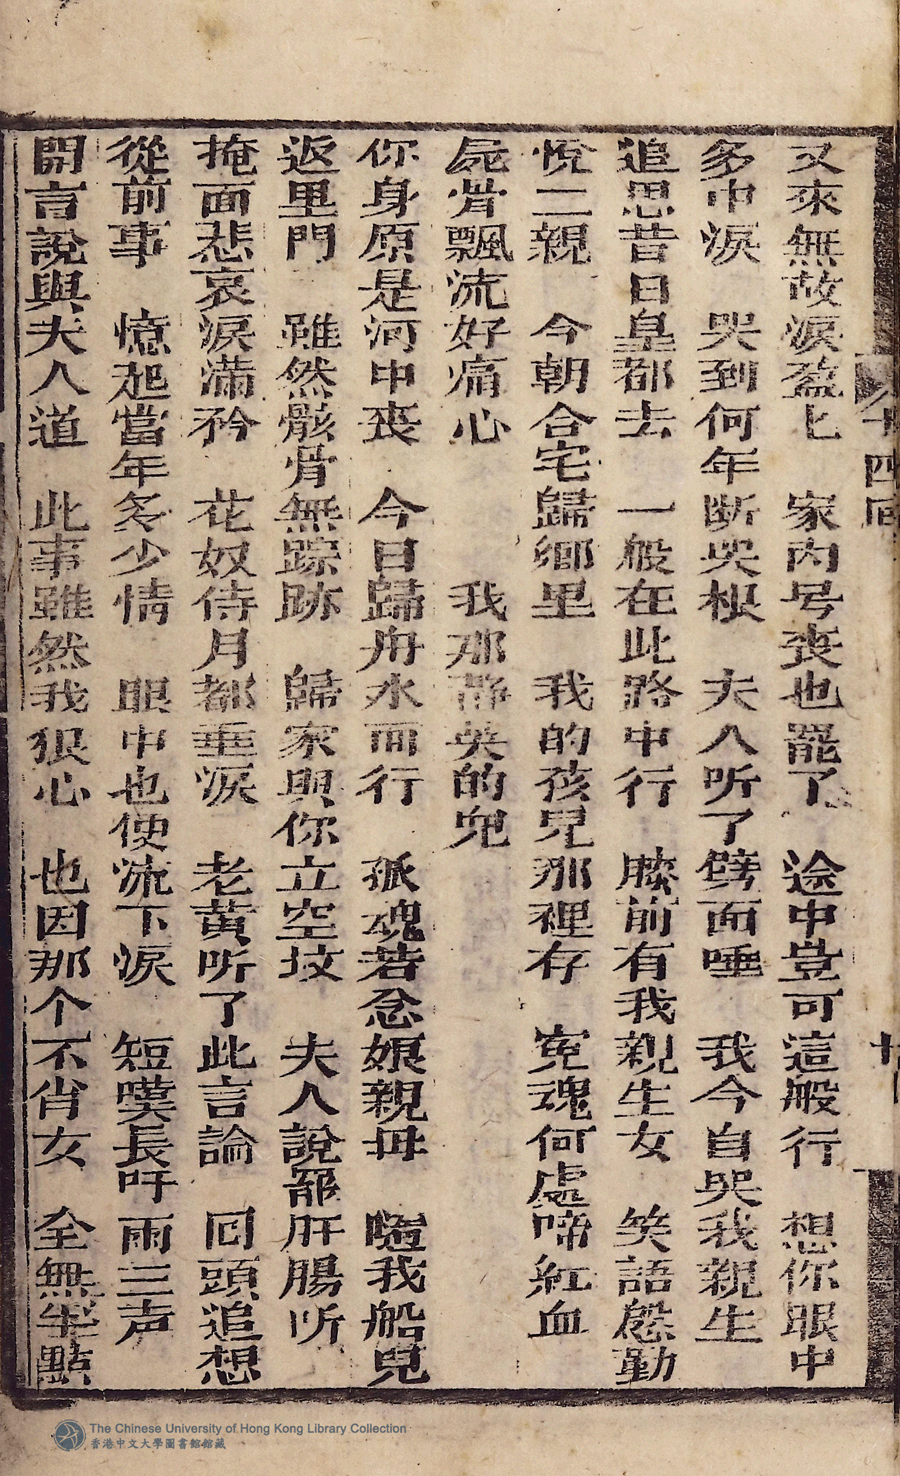 又來無故淚盈匕　家內号丧也罷了　途中豈可這般行　想你眼中
多中淚　哭到何年断哭根　夫人听了劈面唾　我今自哭我親生
追思昔日皇都去　一般在此路中行　膝前有我親生女　笑語慇勤
悅二親　今朝合宅歸鄉里　我的孩兒那裡存　寃魂何處啼紅血
屍骨飄流好痛心　我那静英的兒
你身原是河中丧　今日歸舟水面行　孤魂若念娘親毋　隨我船兒
返里門　雖然骸骨無踪跡　歸家與你立空坟　夫人說罷肝腸断
掩面悲哀淚滿矜　花奴侍月都垂淚　老黃听了此言論　囘頭追想
從前事　憶起當年多少情　眼中也便流下淚　短嘆長吁兩三声
開言說與夫人道　此事雖然我狠心　也因那个不肖女　全無半點
十四回
The Chinese University of Hong Kong Library Collection
香港中文大學圖書館館藏